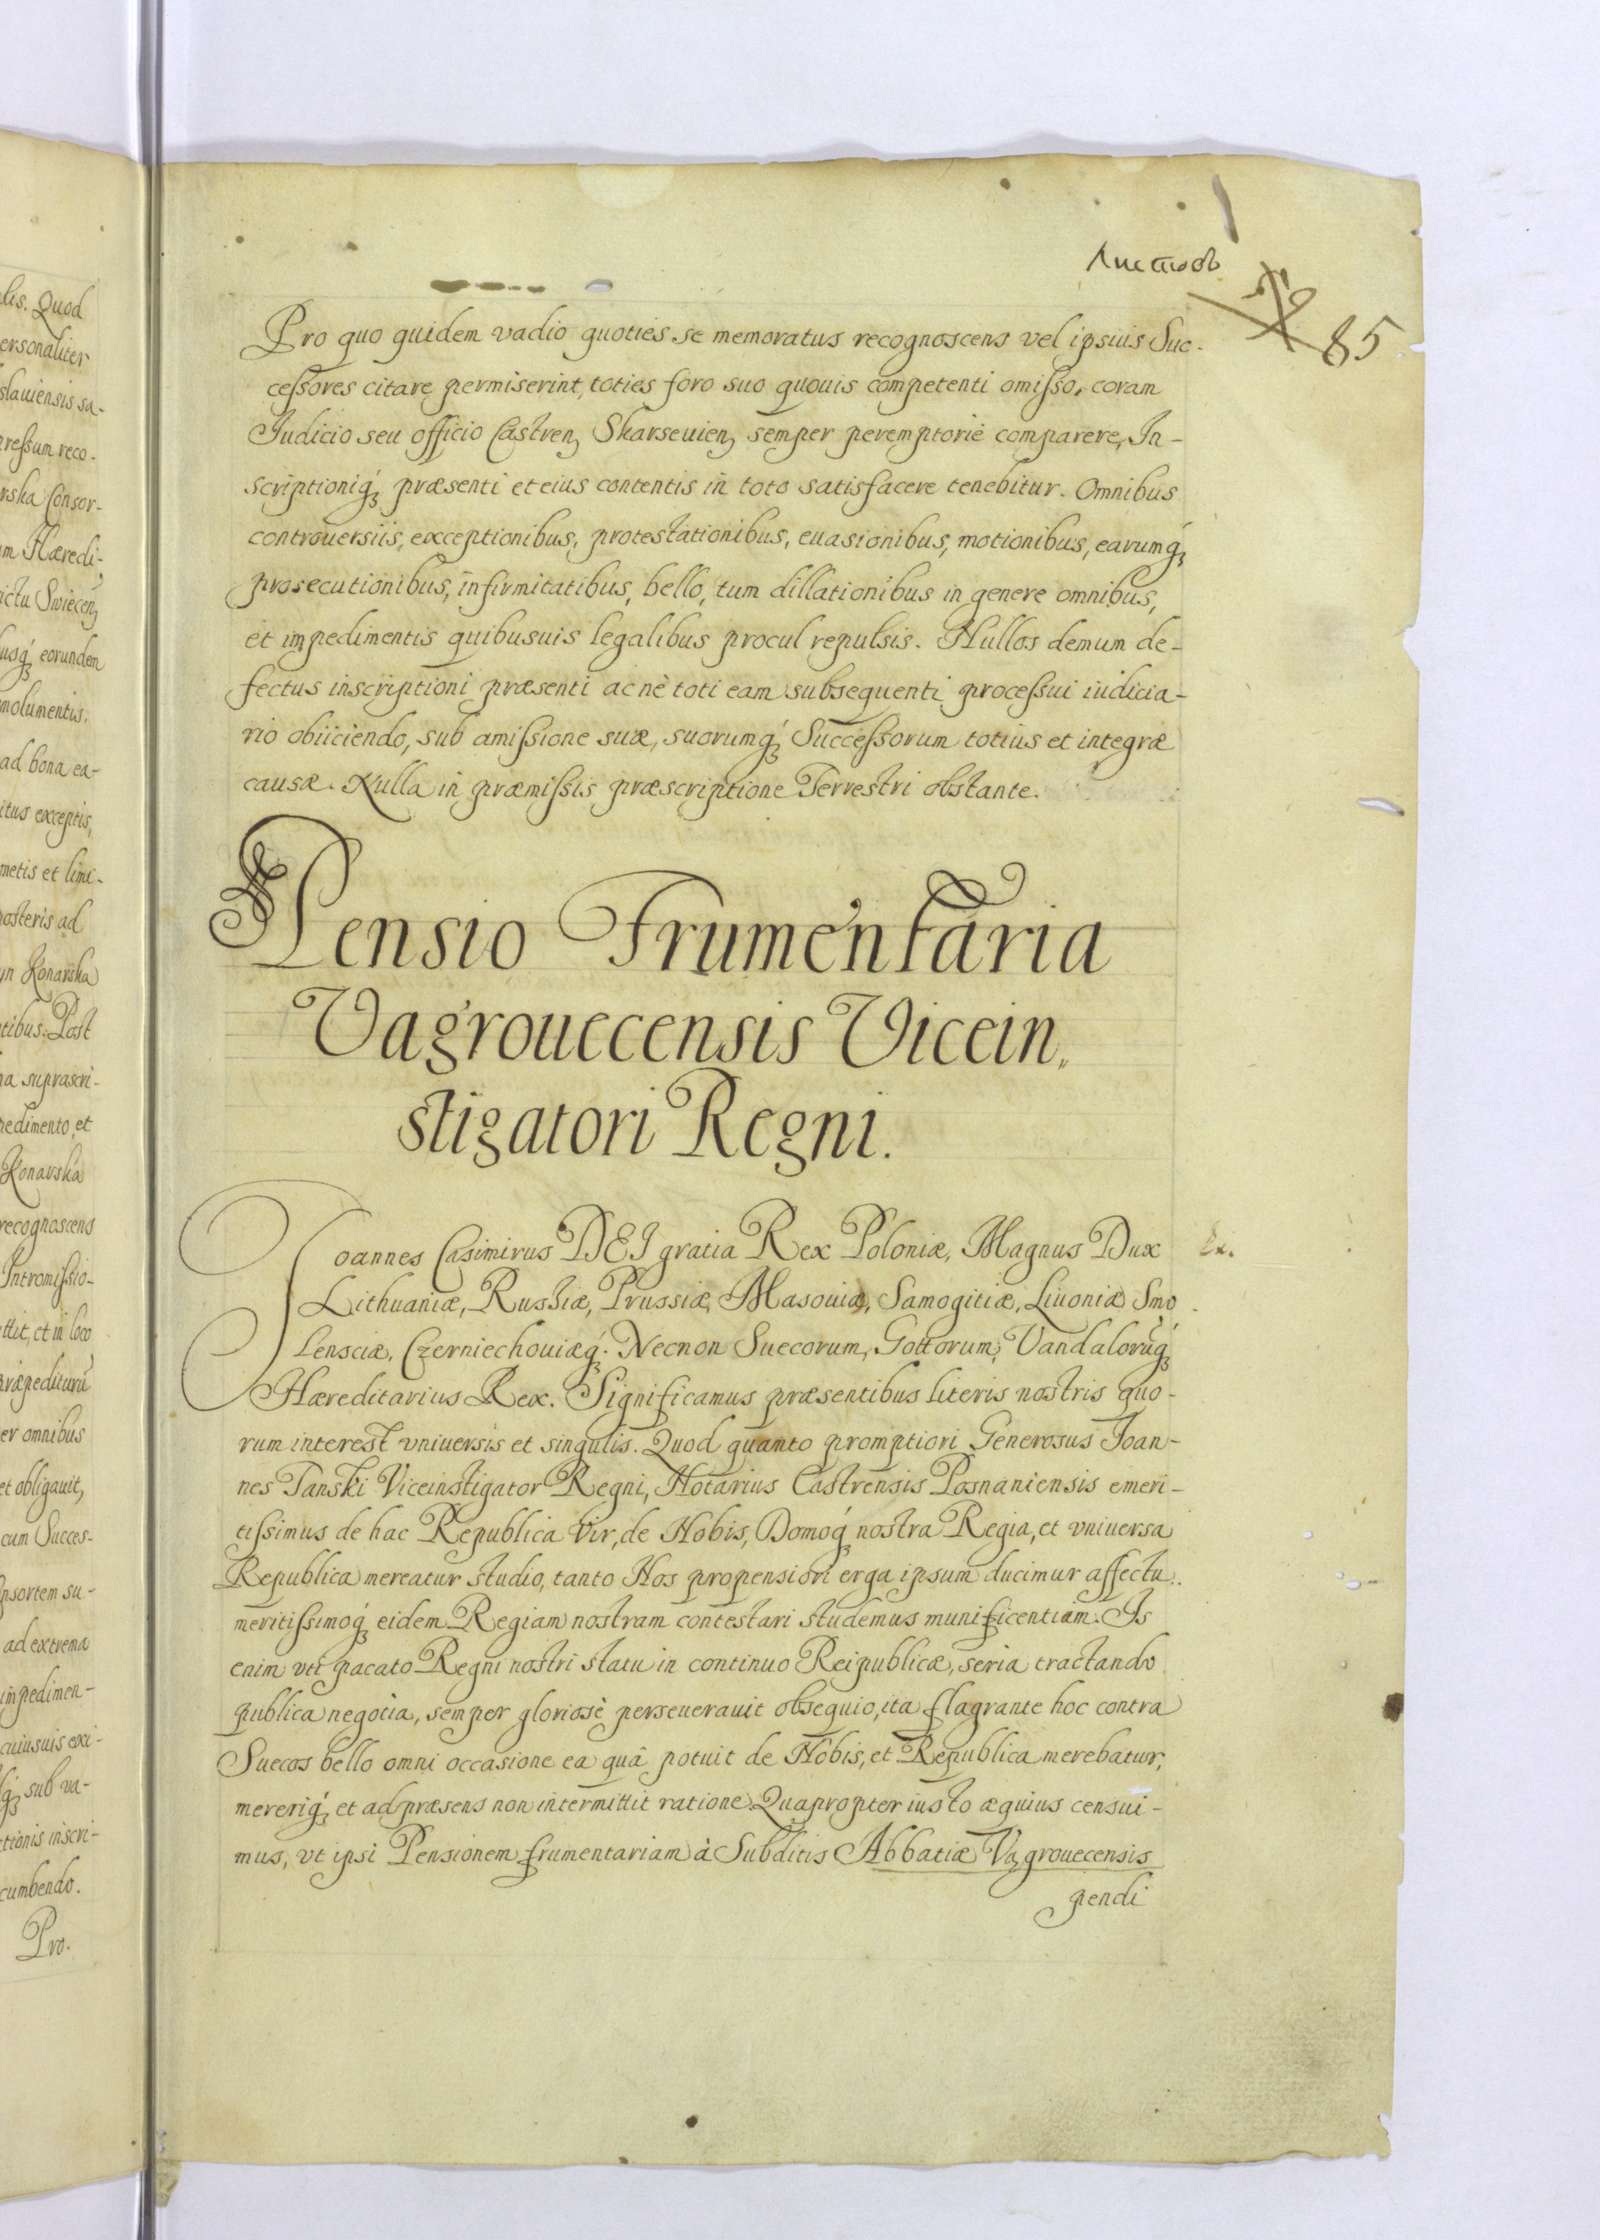 lis. Quod
ersonaliter
slauiensis sa-
ressum reco-
rska Consor-
m Hæredi-
ictu Swiecen
usq́ʒ eorundem
molumentis.
ad bona ea-
itus exceptis,
metis et limi-
osteris ad
yn Konarska
tibus. Post
na suprascri-
pedimento, et
Konarska
recognoscens
Intromissio-
ttit, et in loco
præpediturũ
er omnibus
et obligauit,
cum Succes-
nsortem su-
ad extrema
impedimen-
cuiusuis exi-
q́ʒ sub va-
ctionis inscri-
cumbendo.
Pro.
Листовъ
85
Pro quo quidem vadio quoties se memoratus recognoscens vel ipsius Suc-
cessores citare permiserint, toties foro suo quouis competenti omisso, coram
Iudicio seu officio Castrenʒ Skarseuienʒ semper peremptorie comparere, In-
scriptioniq́ʒ præsenti et eius contentis in toto satisfacere tenebitur. Omnibus
controuersiis, exceptionibus, protestationibus, euasionibus, motionibus, earumq́ʒ
prosecutionibus, infirmitatibus, bello, tum dillationibus in genere omnibus,
et impedimentis quibusuis legalibus procul repulsis. Nullos demum de-
fectus inscriptioni præsenti ac nè toti eam subsequenti processui iudicia-
rio obiiciendo, sub amissione suæ, suorumq́ʒ Successorum totius et integræ
causæ. Nulla in præmissis præscriptione Terrestri obstante.
Pensio Frumentaria
Vagrouecensis Vicein„
stigatori Regni.
Joannes Casimirus DEI gratia Rex Poloniæ, Magnus Dux
Lithuaniæ, Russiæ, Prussiæ, Masouiæ, Samogitiæ, Liuoniæ Smo-
lensciæ, Czerniechouiæq́ʒ. Necnon Suecorum, Gottorum, Vandalorũq́ʒ
Hæreditarius Rex. Significamus præsentibus literis nostris quo-
rum interest vniuersis et singulis. Quod quanto promptiori Generosus Ioan-
nes Tanski Viceinstigator Regni, Notarius Castrensis Posnaniensis emeri-
tissimus de hac Republica Vir, de Nobis, Domoq́ʒ nostra Regia, et vniuersa
Republica mereatur studio, tanto Nos propensiori erga ipsum ducimur affectu.
meritissimoq́ʒ eidem Regiam nostram contestari studemus munificentiam. Is
enim vti pacato Regni nostri statu in continuo Reipublicæ, seria tractando
publica negotia, semper gloriosè perseuerauit obsequio, ita flagrante hoc contra
Suecos bello omni occasione ea quâ potuit de Nobis, et Republica merebatur,
mereriq́ʒ et ad præsens non intermittit ratione. Quapropter iusto æquius censui-
mus, vt ipsi Pensionem frumentariam à Subditis Abbatiæ Vagrouecensis
pendi